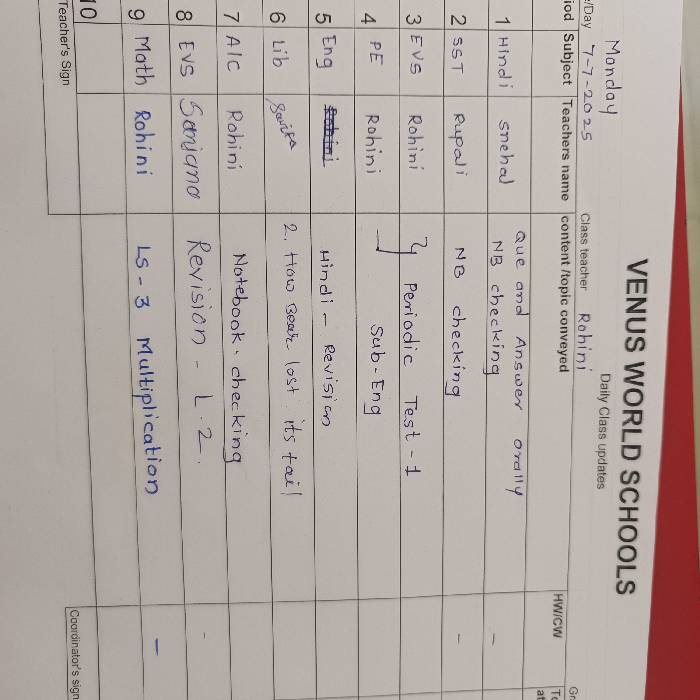 VENUS WORLD SCHOOLS
Daily Class updates
Monday
/Day 7-7-2025 Class teacher Rohini
iod Subject Teachers name content /topic conveyed HW/CW
1 Hindi snehal Que and Answer orally
NB checking -
2 SST Rupali NB checking -
3 EVS Rohini } Periodic Test - 1
4 PE Rohini Sub - Eng
5 Eng Hindi - Revision
6 Lib Savita 2. How Bear lost its tail
7 A/C Rohini Notebook checking
8 EVS Revision - L. 2. -
9 Math Rohini LS - 3 Multiplication -
10
Teacher's Sign Coordinator's sign